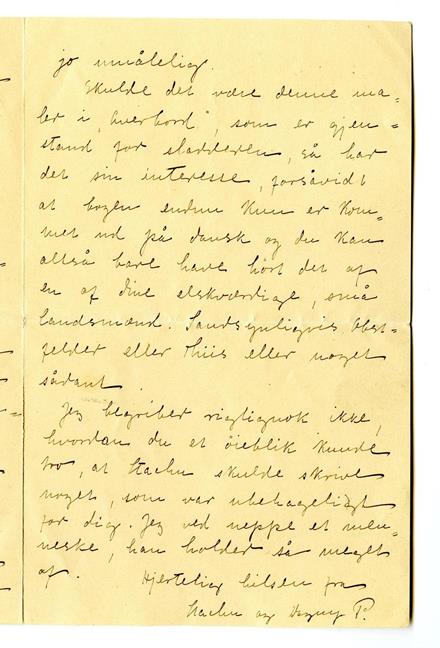 jo umålelig.
Skulde det være denne ma-
ler i „Overbord", som er gjen-
stand for sladderen, så har
det sin interesse, forsåvidt
at bogen endnu kun er kom-
met ud på dansk og du kan
altså bare have hørt det af
en af dine elskværdige, små
landsmænd. Sandsynligvis Obst-
felder eller Thiis eller noget
sådant.
Jeg begriber rigtignok ikke,
hvordan du et øieblik kunde
tro, at Stachu skulde skrive
noget, som var ubehageligt
for dig. Jeg ved neppe et men-
neske, han holder så meget
af. Hjertelig hilsen fra
Stachu og Dagny P.